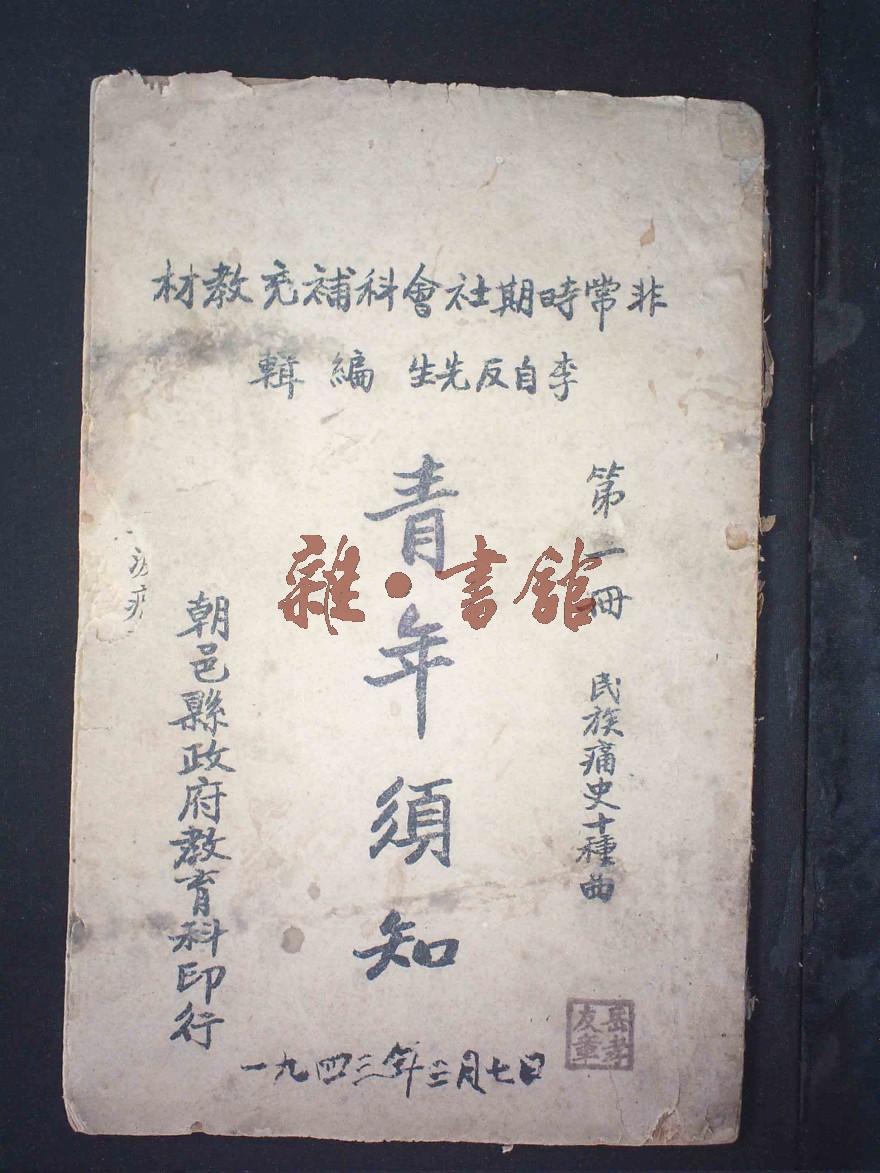 非常時期社會科補充教材
李自反先生編輯
第一冊 民族痛史十種曲
青年須知
朝邑縣政府教育科印行
一九四三年三月七日
岳孝友章
雜·書舘